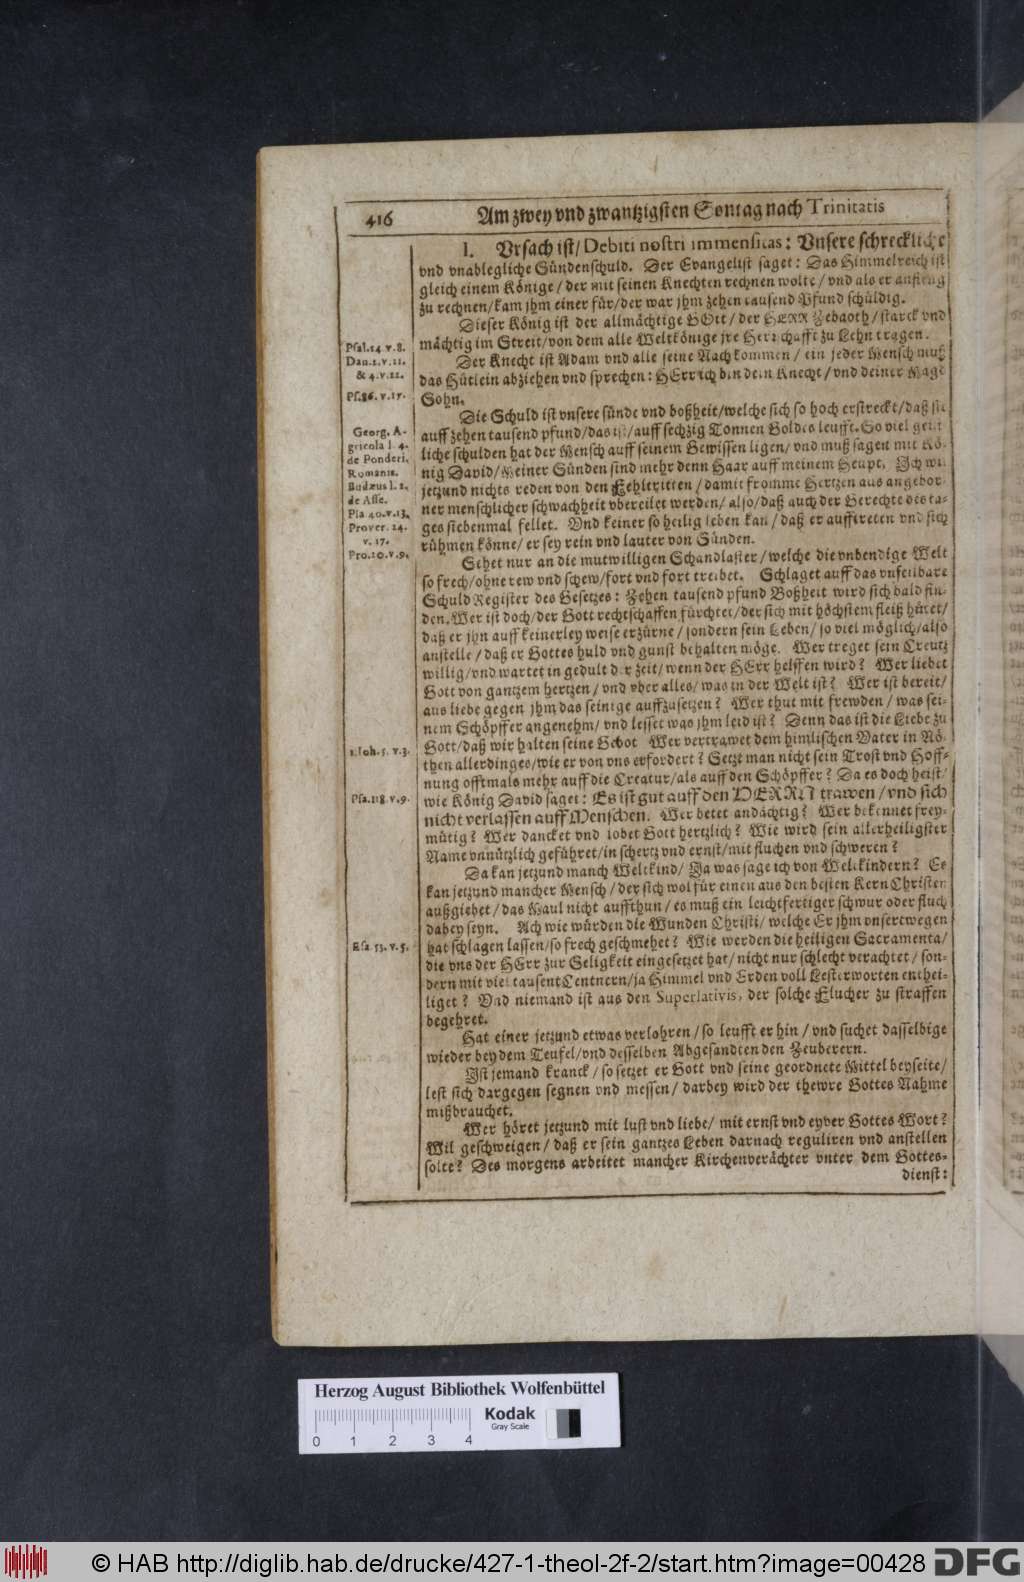 416
Am zwey vnd zwantzigsten Sontag nach Trinitatis
I. Vrsach ist/ Debiti nostri immensitas: Vnsere schreckliche
vnd vnablegliche Sündenschuld. Der Evangelist saget: Das Himmelreich ist
gleich einem Könige/ der mit seinen Knechten rechnen wolte/ vnd als er anfieng
zu rechnen/ kam jhm einer für/ der war jhm zehen tausend Pfund schüldig.
Dieser König ist der allmächtige GOtt/ der HERR Zebaoth/ starck vnd
mächtig im Streit/ von dem alle Weltkönige jre Herrschafft zu Lehn tragen.
Der Knecht ist Adam vnd alle seine Nachkommen/ ein jeder Mensch muß
das Hütlein abziehen vnd sprechen: HErr ich bin dein Knecht/ vnd deiner Magd
Sohn.
Die Schuld ist vnsere sünde vnd boßheit/ welche sich so hoch erstreckt/ daß sie
auff zehen tausend pfund/ das ist/ auff sechzig Tonnen Goldes leufft. So viel geist
liche schulden hat der Mensch auff seinem Gewissen ligen/ vnd muß sagen mit Kö-
nig David/ Meiner Sünden sind mehr denn Haar auff meinem Heupt. Ich wil
jetzund nichts reden von den Fehltritten/ damit fromme Hertzen aus angebor-
ner menschlicher schwachheit vbereilet werden/ also/ daß auch der Gerechte des ta-
ges siebenmal fellet. Vnd keiner so heilig leben kan/ daß er aufftreten vnd sich
rühmen könne/ er sey rein vnd lauter von Sünden.
Sehet nur an die mutwilligen Schandlaster/ welche die vnbendige Welt
so frech/ ohne rew vnd schew/ fort vnd fort treibet. Schlaget auff das vnfeilbare
Schuld Register des Gesetzes: Zehen tausend pfund Boßheit wird sich bald fin-
den. Wer ist doch/ der Gott rechtschaffen fürchtet/ der sich mit höchstem fleiß hütet/
daß er jhn auff keinerley weise erzürne/ sondern sein Leben/ so viel möglich/ also
anstelle/ daß er Gottes huld vnd gunst behalten möge. Wer treget sein Creutz
willig/ vnd wartet in gedult der zeit/ wenn der HErr helffen wird? Wer liebet
Gott von gantzem hertzen/ vnd vber alles/ was in der Welt ist? Wer ist bereit/
aus liebe gegen jhm das seinige auffzusetzen? Wer thut mit frewden/ was sei-
nem Schöpffer angenehm/ vnd lesset was jhm leid ist? Denn das ist die Liebe zu
Gott/ daß wir halten seine Gebot Wer vertrawet dem himlischen Vater in Nö-
then allerdinges/ wie er von vns erfordert? Setzt man nicht sein Trost vnd Hoff-
nung offtmals mehr auff die Creatur/ als auff den Schöpffer? Da es doch heist/
wie König David saget: Es ist gut auff den HERRN trawen/ vnd sich
nicht verlassen auff Menschen. Wer betet andächtig? Wer bekennet frey-
mütig? Wer dancket vnd lobet Gott hertzlich? Wie wird sein allerheiligster
Name vnnützlich geführet/ in schertz vnd ernst/ mit fluchen vnd schweren?
Da kan jetzund manch Weltkind/ Ja was sage ich von Weltkindern? Es
kan jetzund mancher Mensch/ der sich wol für einen aus den besten Kern Christen
außgiebet/ das Maul nicht auffthun/ es muß ein leichtfertiger schwur oder fluch
dabey seyn. Ach wie würden die Wunden Christi/ welche Er jhm vnsertwegen
hat schlagen lassen/ so frech geschmehet? Wie werden die heiligen Sacramenta/
die vns der HErr zur Seligkeit eingesetzet hat/ nicht nur schlecht verachtet/ son-
dern mit viel tausent Centnern/ ja Himmel vnd Erden voll Lesterworten enthei-
liget? Vnd niemand ist aus den Superlativis, der solche Flucher zu straffen
begehret.
Hat einer jetzund etwas verlohren/ so leufft er hin/ vnd suchet dasselbige
wieder bey dem Teufel/ vnd desselben Abgesandten den Zeuberern.
Ist jemand kranck/ so setzet er Gott vnd seine geordnete Mittel beyseite/
lest sich dargegen segnen vnd messen/ darbey wird der thewre Gottes Nahme
mißbrauchet.
Wer höret jetzund mit lust vnd liebe/ mit ernst vnd eyver Gottes Wort?
Wil geschweigen/ daß er sein gantzes Leben darnach reguliren vnd anstellen
solte? Des morgens arbeitet mancher Kirchenverächter vnter dem Gottes-
dienst:
Psal.24.v.8.
Dan.2.v.21.
& 4.v.22.
Ps.86.v.17.
Georg. A-
gricola l. 4.
de Ponderi.
Romanis.
Budæus l. 2.
de Asse.
Psa 40.v.13.
Prover. 24.
v. 17.
Pro.20.v.9.
1.Ioh.5. v.3.
Psa.118.v.9.
Esa 53. v.5.
Herzog August Bibliothek Wolfenbüttel
Kodak
Gray Scale
0 1 2 3 4
© HAB http://diglib.hab.de/drucke/427-1-theol-2f-2/start.htm?image=00428
DFG